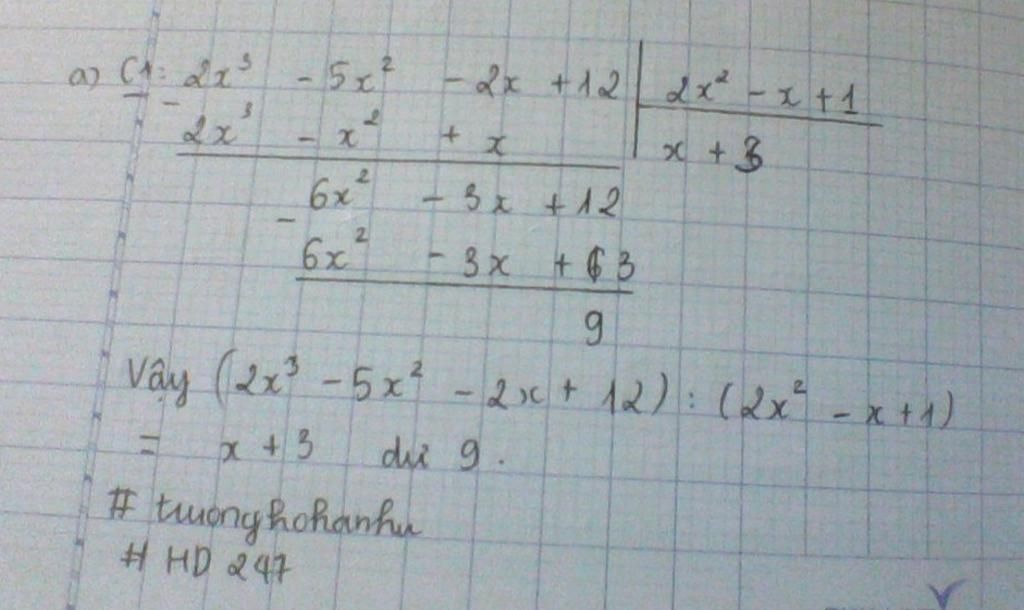 a) C1: 2x³ - 5x² - 2x + 12 | 2x² - x + 1
- 2x³ - x² + x | x + 3
- 6x² - 3x + 12
6x² - 3x + 3
9
Vậy (2x³ - 5x² - 2x + 12) : (2x² - x + 1)
= x + 3 dư 9.
# truonghohanhu
# HD 247